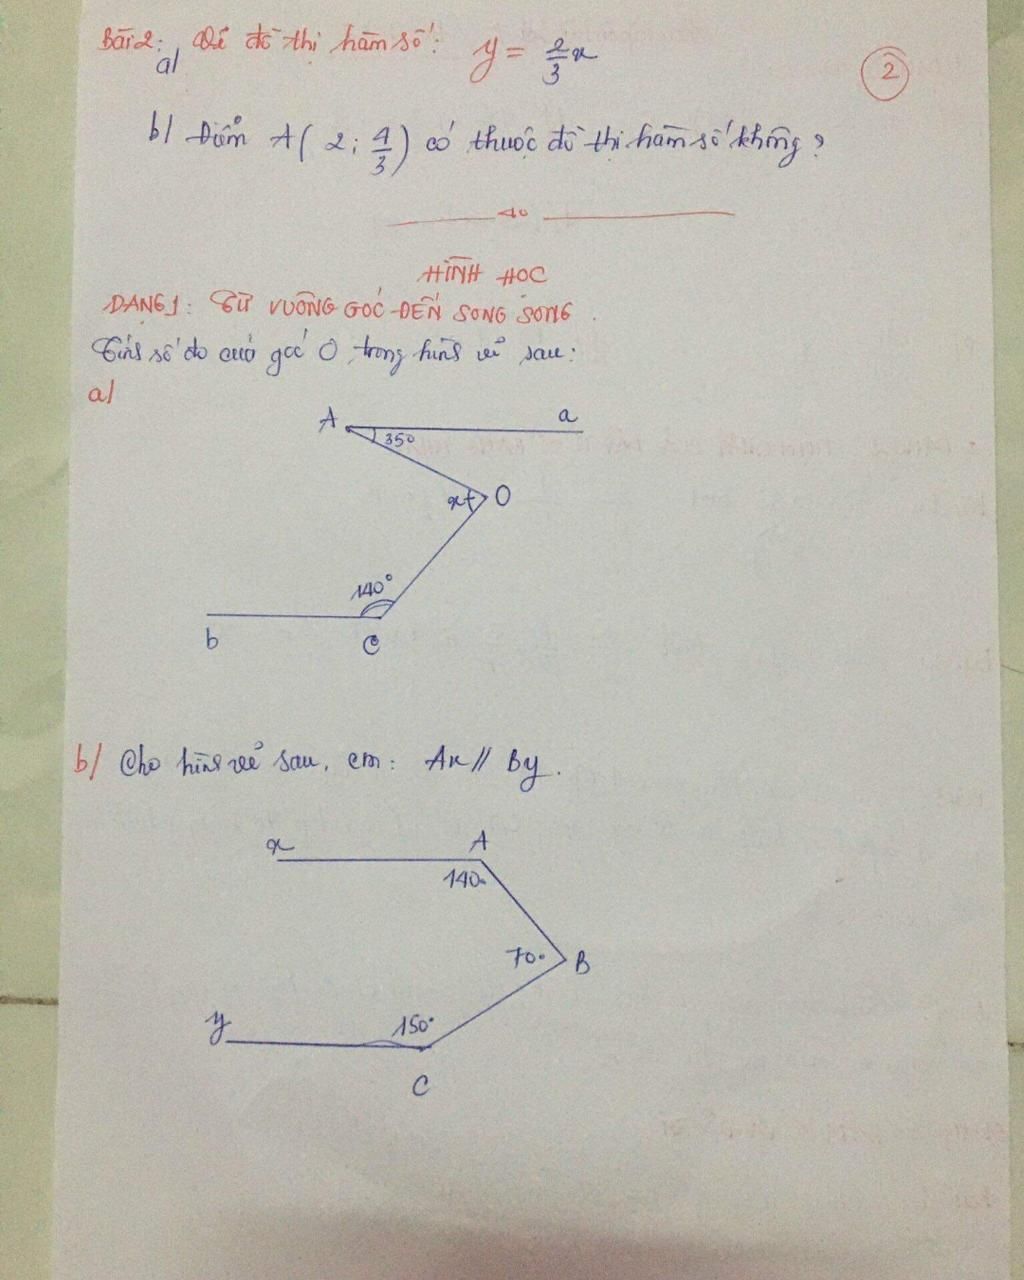 Bài 2: Vẽ đồ thị hàm số: y = 2/3 x
a/
2
b/ Điểm A( 2; 4/3 ) có thuộc đồ thị hàm số không?
HÌNH HỌC
DẠNG 1: TỪ VUÔNG GÓC ĐẾN SONG SONG.
Tính số đo của góc O trong hình vẽ sau:
a/
A a
35°
x O
140°
b C
b/ Cho hình vẽ sau, cm: Ax // By.
x A
140°
70° B
y 150°
C